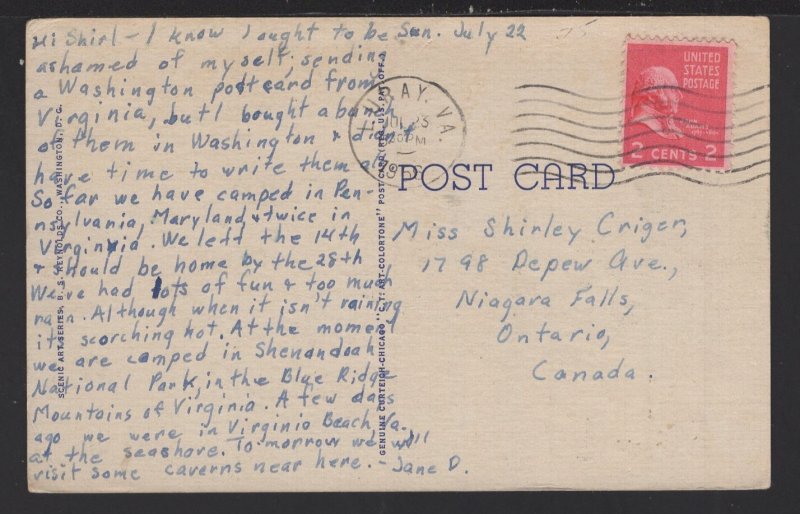 Hi Shirl - I know I ought to be
ashamed of myself, sending
a Washington postcard from
Virginia, but I bought a bunch
of them in Washington & didn't
have time to write them all
So far we have camped in Pen-
nsylvania, Maryland & twice in
Virginia. We left the 14th
& should be home by the 28th
We've had lots of fun & too much
rain. Although when it isn't raining
it's scorching hot. At the moment
we are camped in Shenandoah
National Park, in the Blue Ridge
Mountains of Virginia. A few days
ago we were in Virginia Beach, Va.
at the seashore. To morrow we will
visit some caverns near here. - Jane D.
Sun. July 22
LURAY, VA.
JUL 23
PM
UNITED
STATES
POSTAGE
2 CENTS 2
POST CARD
Miss Shirley Criger,
1798 Depew Ave.,
Niagara Falls,
Ontario,
Canada.
SCENIC ART SERIES, B. S. REYNOLDS CO., WASHINGTON, D. C.
GENUINE CURTEICH-CHICAGO "C.T. ART-COLORTONE" POST CARD (REG. U.S. PAT. OFF.)